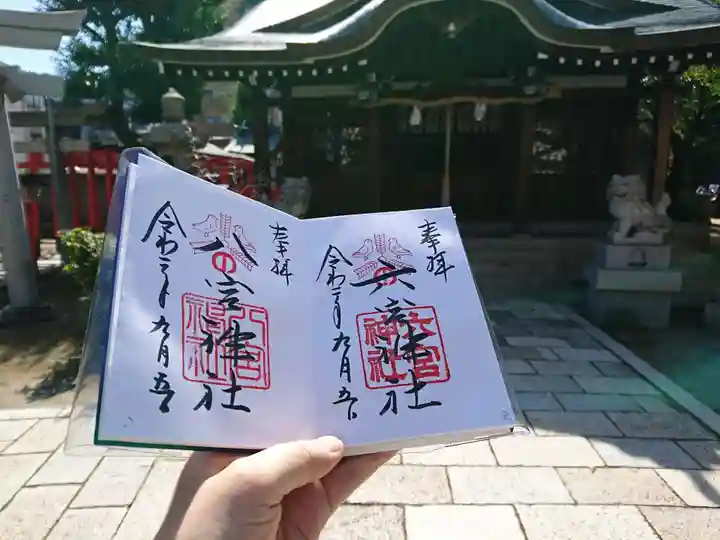 奉拝
六の宮神社
六宮
神社
令和二年九月五日
奉拝
八の宮神社
八宮
神社
令和二年九月五日